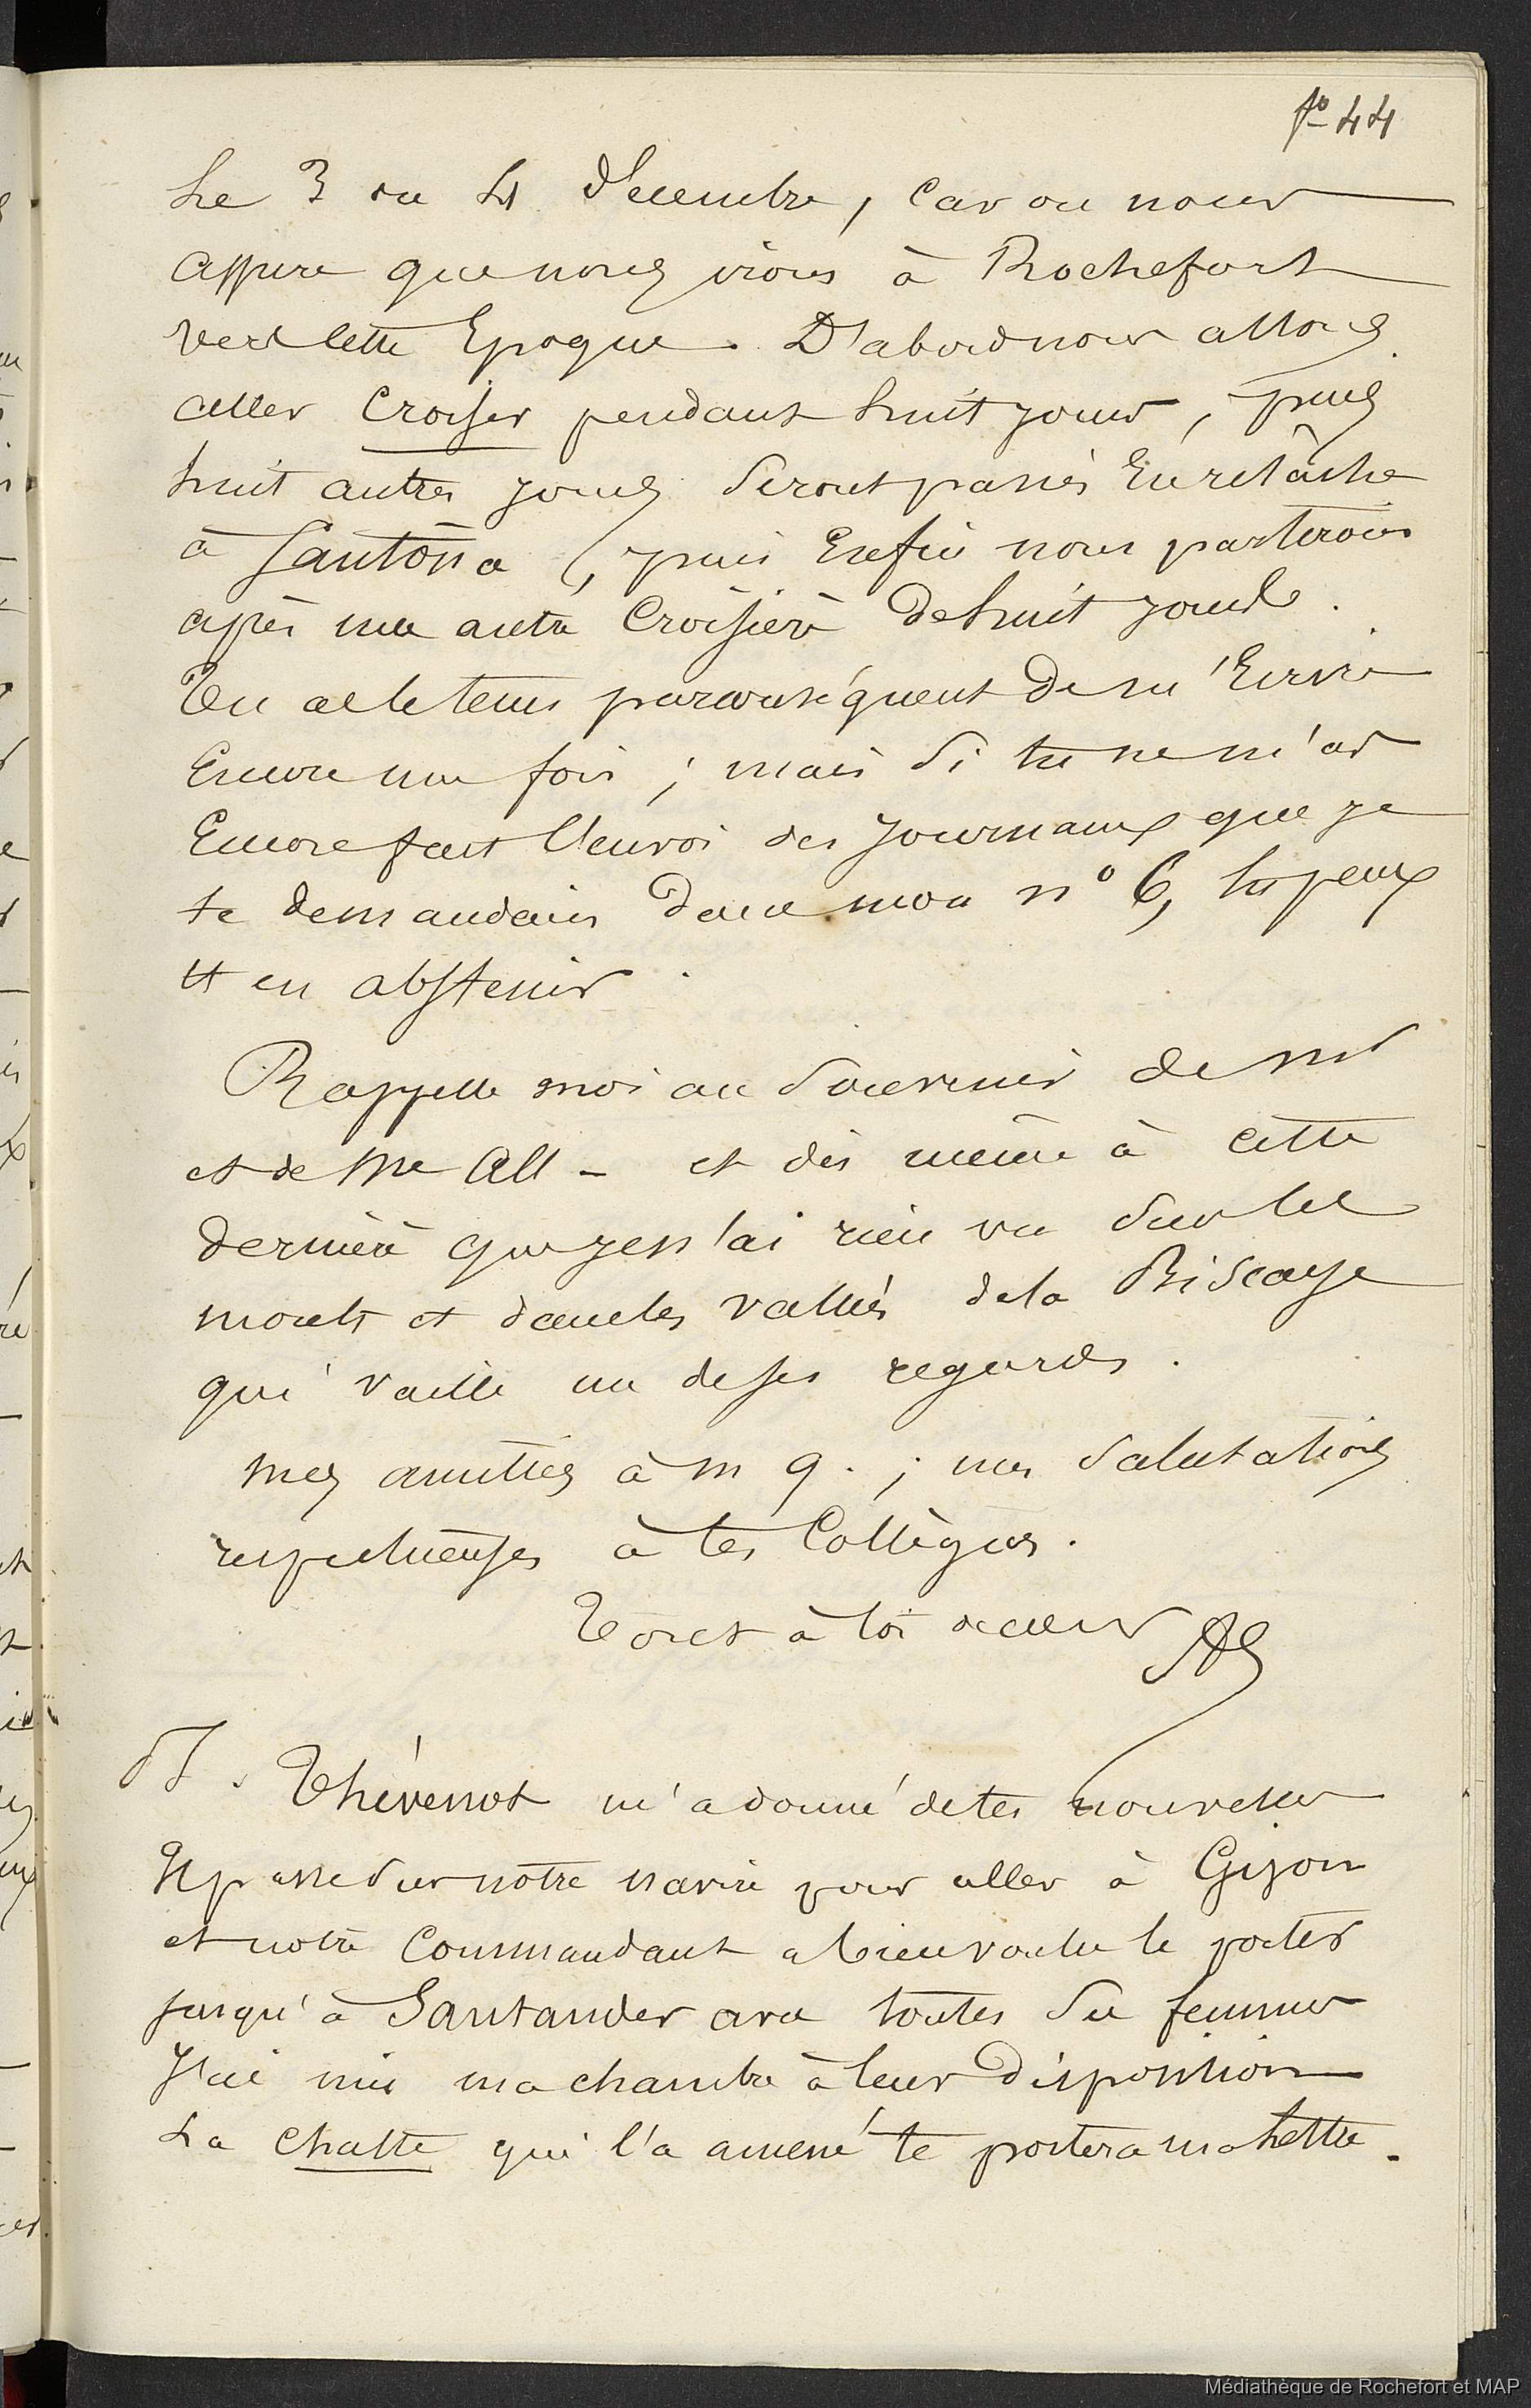 fo 44
Le 3 ou 4 Décembre, Car on nous
assure que nous irons à Rochefort
vers cette Epoque. D'abord nous allons
aller Croiser pendant huit jours, puis
huit autres jours Seront passés En relâche
à Santôna, puis Enfin nous partirons
après une autre Croisière de huit jours.
Tu as le tems par conséquent de m'Ecrire
Encore une fois ; mais Si tu ne m'as
Encore fait l'envoi des Journaux que je
te demandais dans mon n° 6, tu peux
t'en abstenir.
Rappelle moi au Souvenir de mr
et de Me All - et dis même à cette
dernière que je n'ai rien vu Sur les
monts et dans les vallées de la Biscaye
qui vaille un de ses regards.
Mes amitiés à m g. ; mes Salutations
respectueuses à tes Collègues.
Tout à toi de cœur
Thévenot m'a donné de tes nouvelles
Il passe Sur notre navire pour aller à Gijon
et notre Commandant a bien voulu le porter
jusqu'à Santander avec toutes Ses femmes
J'ai mis ma chambre à leur Disposition
La Chatte qui l'a amené te portera ma Lettre.
Médiathèque de Rochefort et MAP